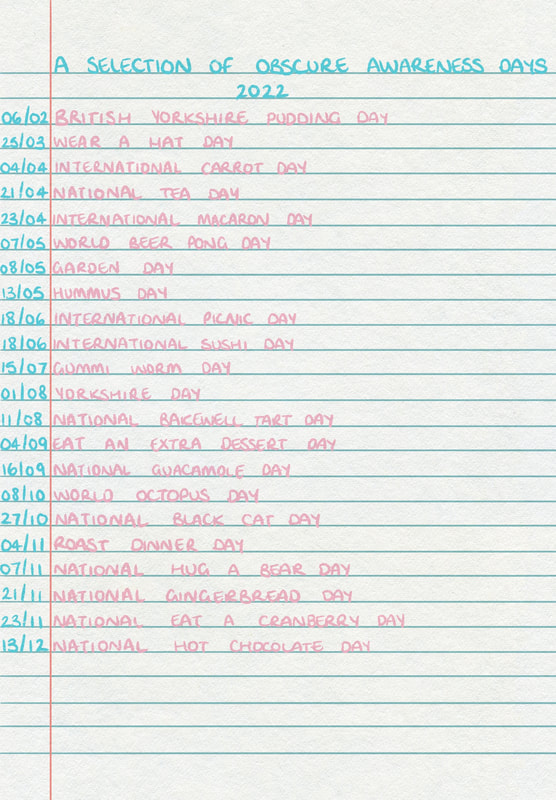 A SELECTION OF OBSCURE AWARENESS DAYS
2022
06/02 BRITISH YORKSHIRE PUDDING DAY
25/03 WEAR A HAT DAY
04/04 INTERNATIONAL CARROT DAY
21/04 NATIONAL TEA DAY
23/04 INTERNATIONAL MACARON DAY
07/05 WORLD BEER PONG DAY
08/05 GARDEN DAY
13/05 HUMMUS DAY
18/06 INTERNATIONAL PICNIC DAY
18/06 INTERNATIONAL SUSHI DAY
15/07 GUMMI WORM DAY
01/08 YORKSHIRE DAY
11/08 NATIONAL BAKEWELL TART DAY
04/09 EAT AN EXTRA DESSERT DAY
16/09 NATIONAL GUACAMOLE DAY
08/10 WORLD OCTOPUS DAY
27/10 NATIONAL BLACK CAT DAY
04/11 ROAST DINNER DAY
07/11 NATIONAL HUG A BEAR DAY
21/11 NATIONAL GINGERBREAD DAY
23/11 NATIONAL EAT A CRANBERRY DAY
13/12 NATIONAL HOT CHOCOLATE DAY